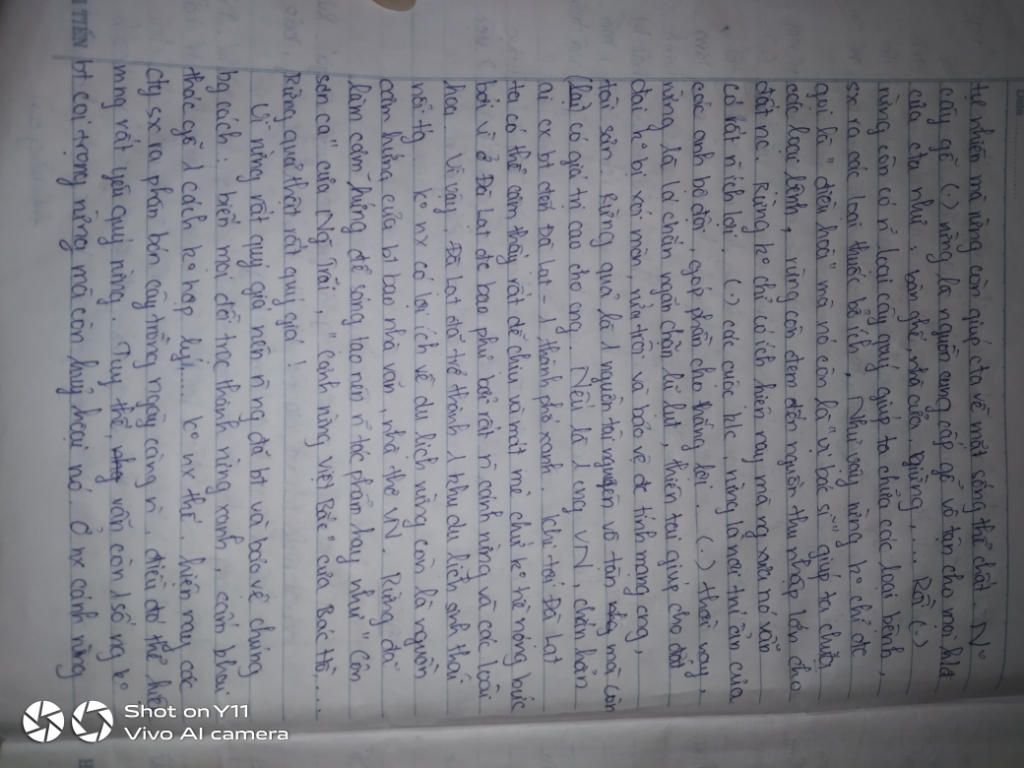 tự nhiên mà rừng còn giúp cta về mặt sống thể chất. N°
cây gỗ (.) rừng là nguồn cung cấp gỗ vô tận cho mọi hđ
của cta như: bàn ghế, nhà cửa, giường,.... Rồi (.)
rừng còn có n̄ loại cây quý giúp ta chữa các loại bệnh,
sx ra các loại thuốc bổ ích. Như vậy rừng k° chỉ đc
gọi là "điều hoà" mà nó còn là "vị bác sĩ" giúp ta chữa
các loại bệnh, rừng còn đem đến nguồn thu nhập lớn cho
đất nc. Rừng k° chỉ có ích hiện nay mà ng xưa nó vẫn
có rất n̄ ích lợi. (.) các cuộc k/c, rừng là nơi trú ẩn của
các anh bộ đội, góp phần cho thắng lợi. (.) thời nay,
rừng là lá chắn ngăn chặn lũ lụt, thiên tai giúp cho đất
đai k° bị xói mòn, rửa trôi và bảo vệ đc tính mạng con ng,
tài sản. Rừng quả là 1 nguồn tài nguyên vô tận mà còn
có giá trị cao cho ng. Nếu là 1 ng VN, chắn hản
ai cx bt đến Đà Lạt - 1 thành phố xanh. Khi tới Đà Lạt
ta có thể cảm thấy rất dễ chịu và mát mẻ chứ k° hề nóng bức
bởi vì ở Đà Lạt đc bao phủ bởi rất n̄ cánh rừng và các loài
hoa. Vì vậy, Đà Lạt đã trở thành 1 khu du lịch sinh thái
nổi tg. K° nx có lợi ích về du lịch rừng còn là nguồn
cảm hứng của bt bao nhà văn, nhà thơ VN. Rừng đã
làm cảm hứng để sáng tạo nên n̄ tác phẩm hay như "Côn
sơn ca" của Ng Trãi, "cảnh rừng việt Bắc" của Bác Hồ,...
Rừng quả thật rất quý giá!
Vì rừng rất quý giá nên n̄ ng đã bt và bảo vệ chúng
bg cách: biến mọi đồi trọc thành rừng xanh, cấm khai
thác gỗ 1 cách k° hợp lý;... k° nx thế, hiện nay các
cty sx ra phân bón cây trồng ngày càng n̄, điều đó thể hiện
mng rất yêu quý rừng. Tuy thế, vẫn còn 1 số ng k°
bt coi trọng rừng mà còn huỷ hoại nó. Ở nx cánh rừng
TIẾN
Shot on Y11
Vivo AI camera